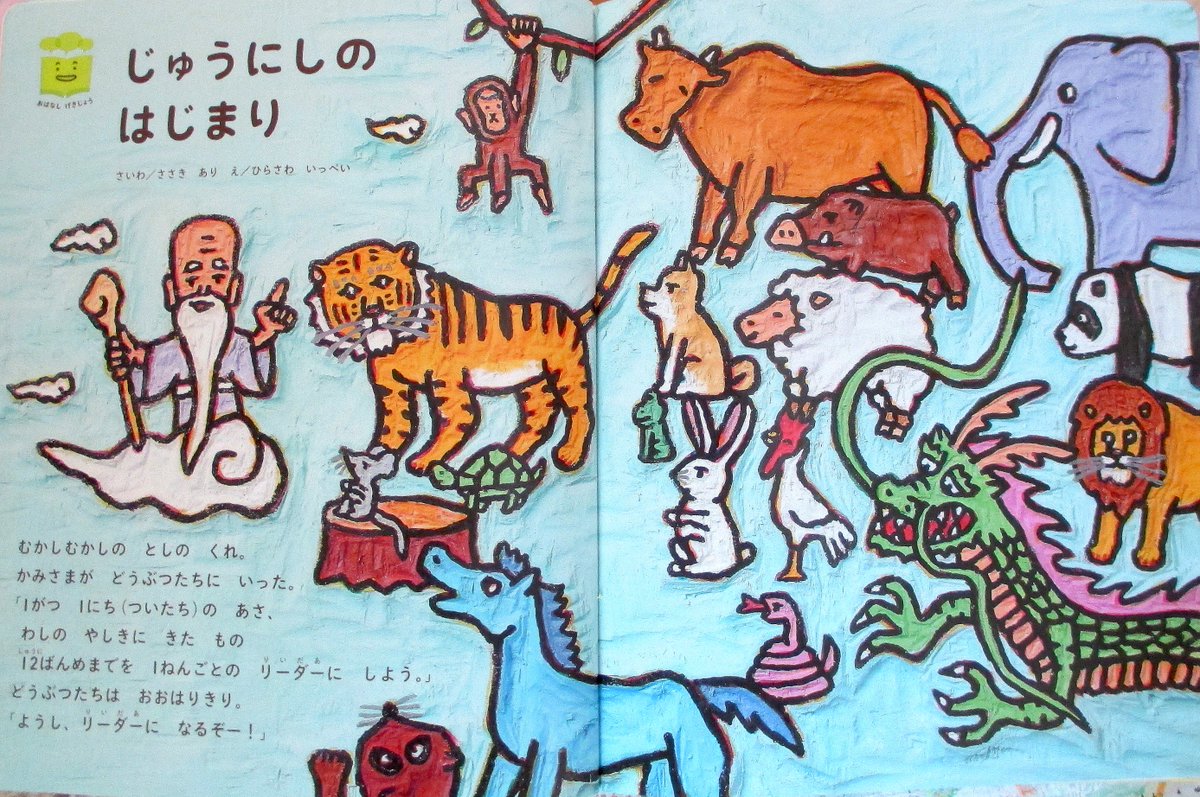 おはなし げきじょう
じゅうにしの
はじまり
さいわ/ささき あり え/ひらさわ いっぺい
むかしむかしの としの くれ。
かみさまが どうぶつたちに いった。
「1がつ 1にち(ついたち)の あさ、
わしの やしきに きた もの
じゅうに りいだあ
12ばんめまでを 1ねんごとの リーダーに しよう。」
どうぶつたちは おおはりきり。
りいだあ
「ようし、リーダーに なるぞー!」